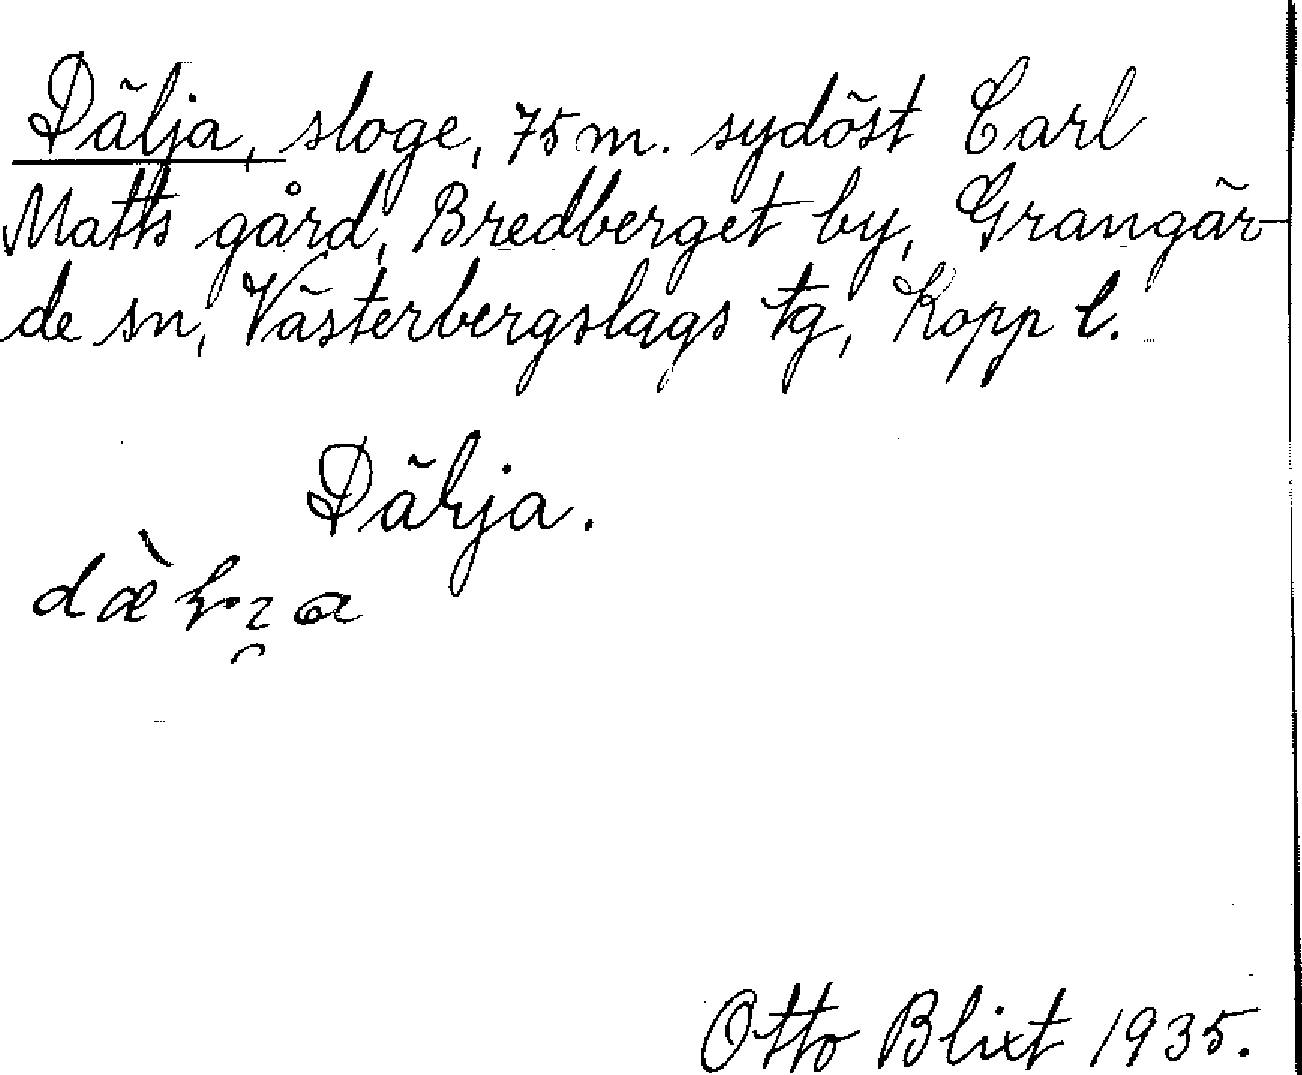 Dälja, sloge, 75 m. sydöst Carl
Matts gård, Bredberget by, Grangär-
de sn, Västerbergslags tg, Kopp l.
Dälja.
Otto Blixt 1935.